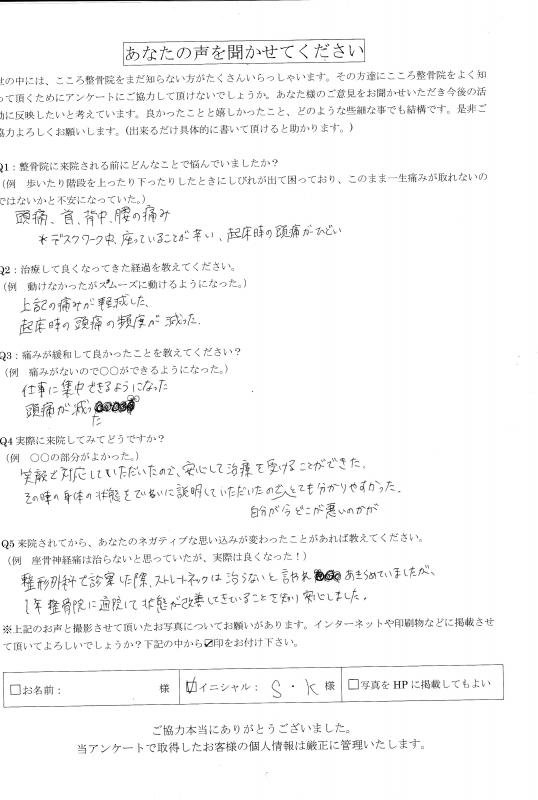 あなたの声を聞かせてください
世の中には、こころ整骨院をまだ知らない方がたくさんいらっしゃいます。その方達にこころ整骨院をよく知
って頂くためにアンケートにご協力して頂けないでしょうか。あなた様のご意見をお聞かせいただき今後の活
動に反映したいと考えています。良かったことと嬉しかったこと、どのような些細な事でも結構です。是非ご
協力よろしくお願いします。(出来るだけ具体的に書いて頂けると助かります。)
Q1：整骨院に来院される前にどんなことで悩んでいましたか？
(例　歩いたり階段を上ったり下ったりしたときにしびれが出て困っており、このまま一生痛みが取れないの
ではないかと不安になっていた。)
頭痛、首、背中、腰の痛み
*デスクワーク中、座っていることが辛い、起床時の頭痛がひどい
Q2：治療して良くなってきた経過を教えてください。
(例　動けなかったがスムーズに動けるようになった。)
上記の痛みが軽減した、
起床時の頭痛の頻度が減った。
Q3：痛みが緩和して良かったことを教えてください？
(例　痛みがないので〇〇ができるようになった。)
仕事に集中できるようになった
頭痛が減った
Q4 実際に来院してみてどうですか？
(例　〇〇の部分がよかった。)
笑顔で対応していただいたので、安心して治療を受けることができた。
その時の身体の状態をていねいに説明していただいたのでとても分かりやすかった。
自分が今どこが悪いのかが
Q5 来院されてから、あなたのネガティブな思い込みが変わったことがあれば教えてください。
(例　座骨神経痛は治らないと思っていたが、実際は良くなった！)
整形外科で診察した際、ストレートネックは治らないと言われ あきらめていましたが、
1年整骨院に通院して状態が改善してきていることを知り安心しました。
※上記のお声と撮影させて頂いたお写真についてお願いがあります。インターネットや印刷物などに掲載させ
て頂いてよろしいでしょうか？下記の中から☑印をお付け下さい。
□お名前：　　　　　　　様　☑イニシャル：　S・K　様　□写真を HP に掲載してもよい
ご協力本当にありがとうございました。
当アンケートで取得したお客様の個人情報は厳正に管理いたします。